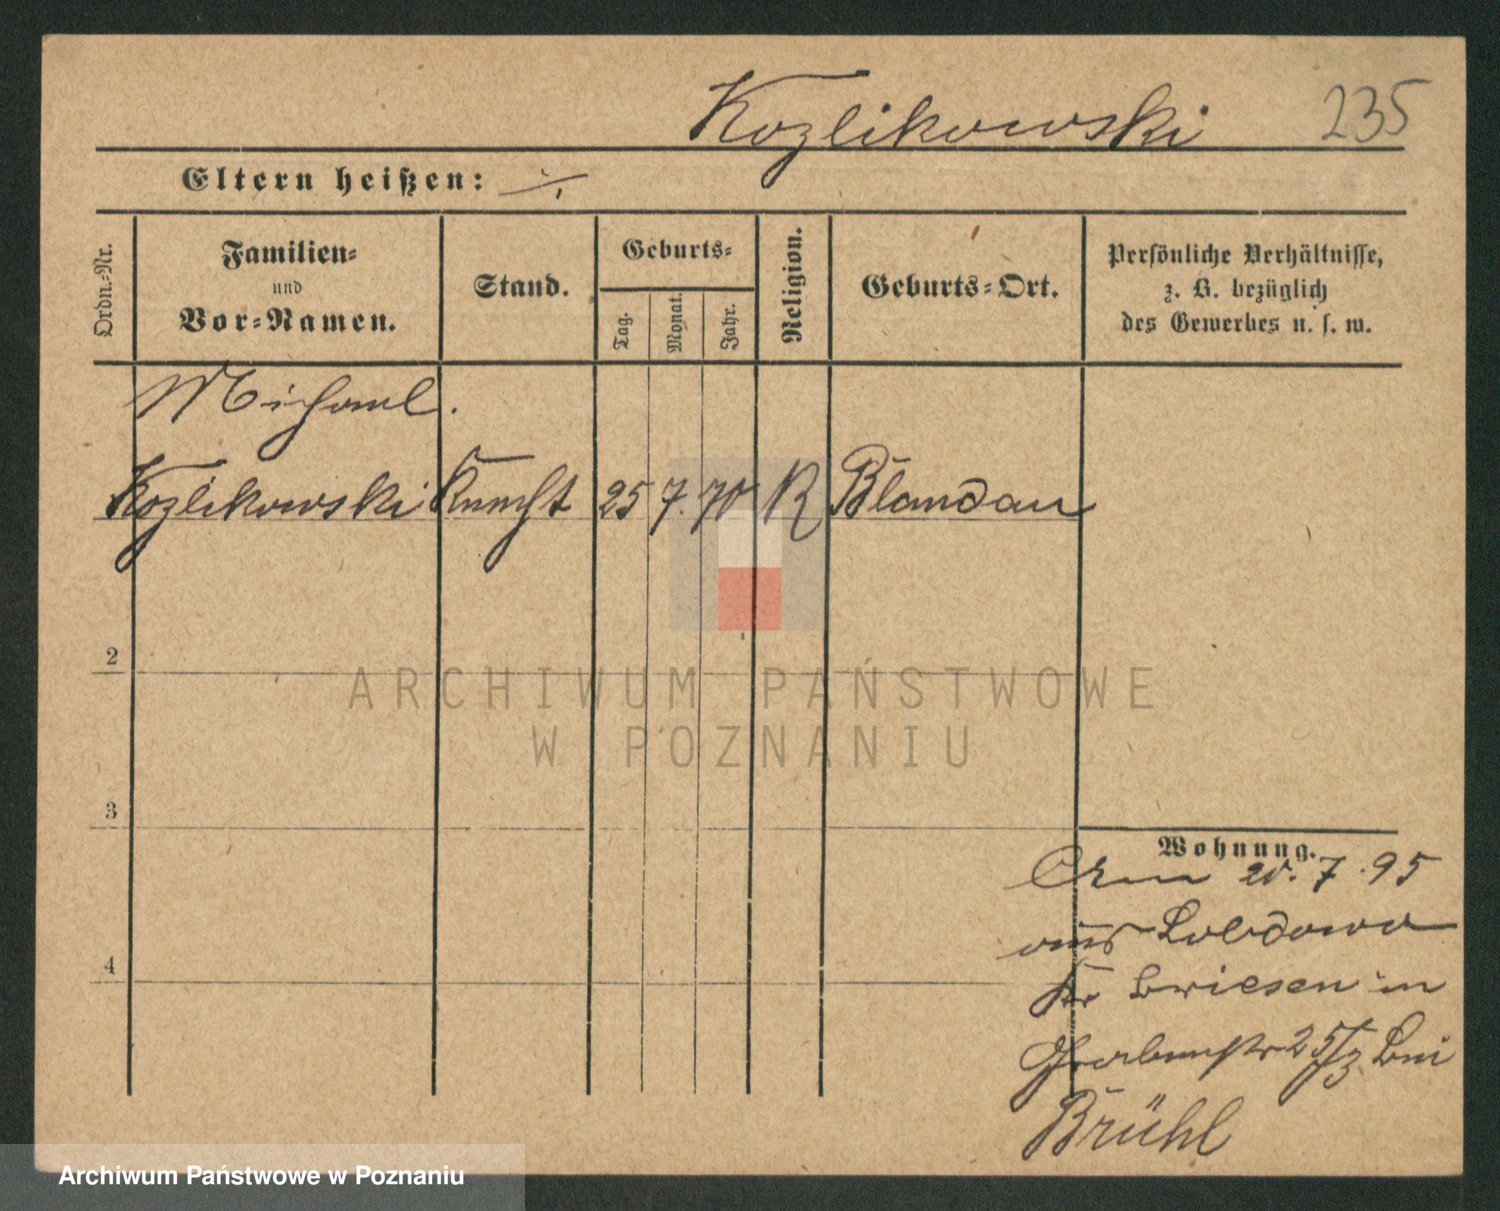 Kozlikowski 235
Eltern heißen: ./.
Ordn.=Nr.
Familien=
und
Vor=Namen.
Stand.
Geburts=
Tag.
Monat.
Jahr.
Religion.
Geburts=Ort.
Persönliche Verhältnisse,
z. B. bezüglich
des Gewerbes u. s. w.
Michael.
Kozlikowski Knecht 25 7. 70 R Blandau
2
3
4
Wohnung.
20. 7. 95
aus Lobdowo
Kr Briesen in
Grabenstr 25/3 bei
Brühl
ARCHIWUM PAŃSTWOWE
W POZNANIU
Archiwum Państwowe w Poznaniu